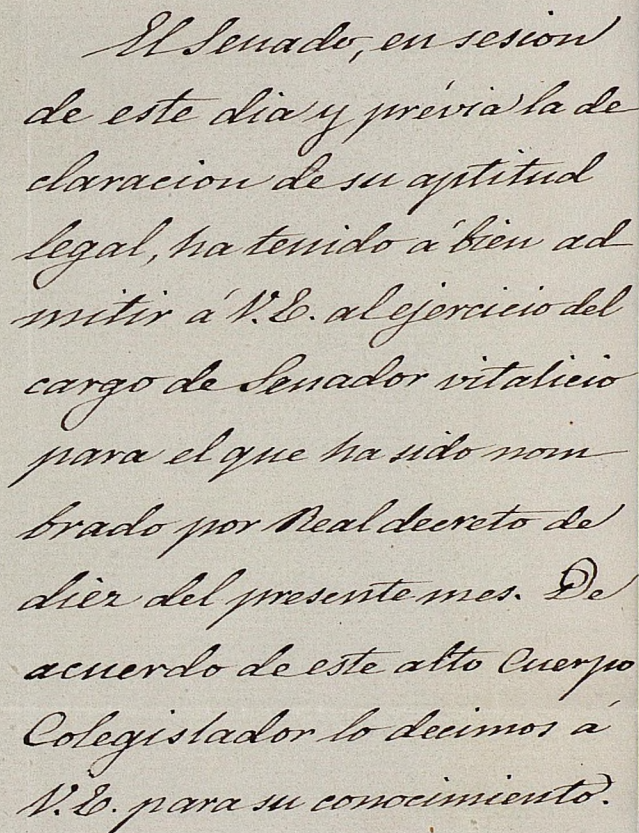 El Senado, en sesion
de este dia y prévia la de
claracion de su aptitud
legal, ha tenido á bien ad
mitir á V.E. al ejercicio del
cargo de Senador vitalicio
para el que ha sido nom
brado por Real decreto de
diez del presente mes. De
acuerdo de este alto Cuerpo
Colegislador lo decimos á
V.E. para su conocimiento.